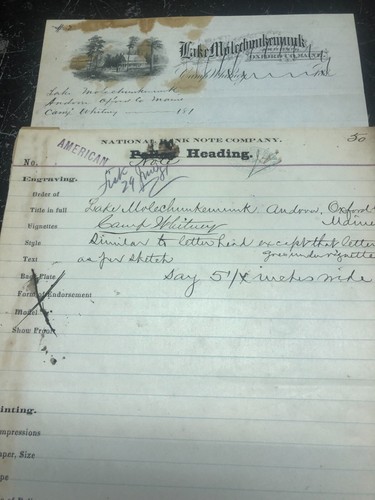 Lake Molechunkemunk
OXFORD CO. MAINE
Lake Molechunkemunk
Andover Oxford Co Maine
Camp Whitney 181
50
NATIONAL BANK NOTE COMPANY.
AMERICAN
No. Note Heading.
Engraving.
Order of
Title in full Lake Molechunkemunk Andover, Oxford
Maine
Vignettes Camp Whitney
Style Similar to letter head except that letter
goes under vignette
Text as per sketch
Back Plate Say 5 1/4 inches wide
Form of Endorsement
Model
Show Proof
Printing.
Impressions
Paper, Size